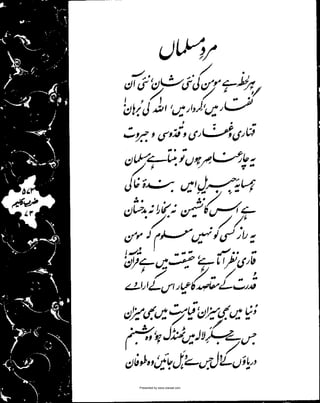 مردِ مسلماں
ہر لحظہ ہے مومن کی نئی شان، نئی آن
گفتار میں، کردار میں، اللہ کی برہان!
قہاری و غفاری و قدوسی و جبروت
یہ چار عناصر ہوں تو بنتا ہے مسلمان
ہمسایۂ جبریلِ امیں بندۂ خاکی
ہے اس کا نشیمن نہ بخارا نہ بدخشان
یہ راز کسی کو نہیں معلوم کہ مومن
قاری نظر آتا ہے، حقیقت میں ہے قرآن!
قدرت کے مقاصد کا عیار اس کے ارادے
دنیا میں بھی میزان، قیامت میں بھی میزان
جس سے جگرِ لالہ میں ٹھنڈک ہو، وہ شبنم
دریاؤں کے دل جس سے دہل جائیں، وہ طوفان
۵۲۳
ضربِ کلیم
۷۳
Presented by www.ziaraat.com